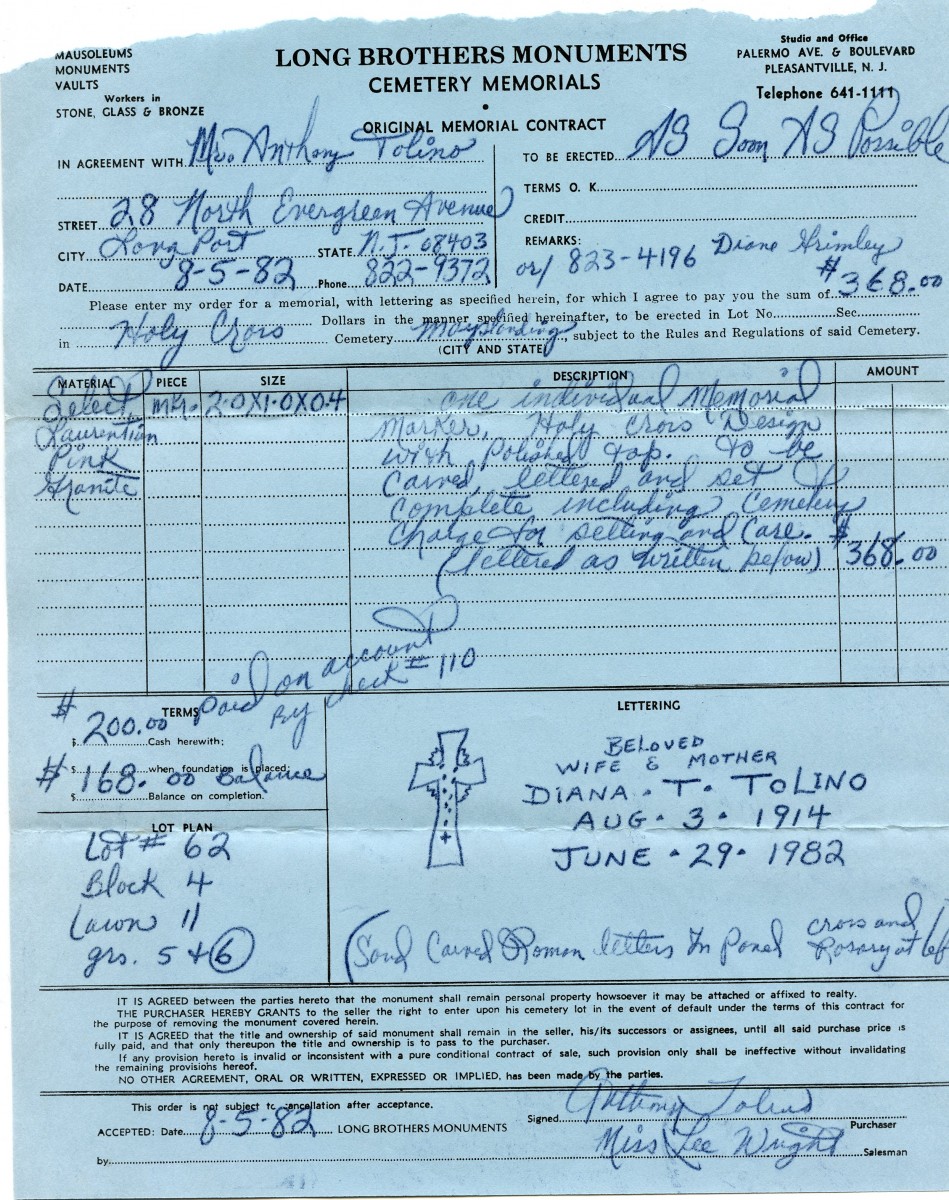 MAUSOLEUMS
MONUMENTS
VAULTS
Workers in
STONE, GLASS & BRONZE
LONG BROTHERS MONUMENTS
CEMETERY MEMORIALS
Studio and Office
PALERMO AVE. & BOULEVARD
PLEASANTVILLE, N. J.
Telephone 641-1111
ORIGINAL MEMORIAL CONTRACT
IN AGREEMENT WITH Mr. Anthony Tolino
STREET 28 North Evergreen Avenue
CITY Long Port STATE N.J. 08403
DATE 8-5-82 Phone 822-9372
TO BE ERECTED AS Soon AS Possible
TERMS O. K.
CREDIT
REMARKS:
or/ 823-4196 Diane Grimley
Please enter my order for a memorial, with lettering as specified herein, for which I agree to pay you the sum of $368.00
Dollars in the manner specified hereinafter, to be erected in Lot No. Sec.
in Holy Cross Cemetery Mayslanding, subject to the Rules and Regulations of said Cemetery.
(CITY AND STATE)
MATERIAL PIECE SIZE DESCRIPTION AMOUNT
Select Mkr. 2-0X1-0X0-4 one individual Memorial
Laurentian Marker, Holy Cross Design
Pink with Polished top. To be
Granite Carved, lettered and set
Complete including Cemetery
Charge for setting and Care. $
(lettered as written below) 368.00
Paid on account
By check # 110
TERMS
$ 200.00
$ Cash herewith;
$ when foundation is placed;
# 168.00 Balance
$ Balance on completion.
LOT PLAN
Lot # 62
Block 4
Lawn 11
grs. 5 & 6
LETTERING
BELOVED
WIFE & MOTHER
DIANA · T · TOLINO
AUG · 3 · 1914
JUNE · 29 · 1982
(Sand Carved Roman letters In Panel cross and
Rosary at lef
IT IS AGREED between the parties hereto that the monument shall remain personal property howsoever it may be attached or affixed to realty.
THE PURCHASER HEREBY GRANTS to the seller the right to enter upon his cemetery lot in the event of default under the terms of this contract for
the purpose of removing the monument covered herein.
IT IS AGREED that the title and ownership of said monument shall remain in the seller, his/its successors or assignees, until all said purchase price is
fully paid, and that only thereupon the title and ownership is to pass to the purchaser.
If any provision hereto is invalid or inconsistent with a pure conditional contract of sale, such provision only shall be ineffective without invalidating
the remaining provisions hereof.
NO OTHER AGREEMENT, ORAL OR WRITTEN, EXPRESSED OR IMPLIED, has been made by the parties.
This order is not subject to cancellation after acceptance.
ACCEPTED: Date 8-5-82 LONG BROTHERS MONUMENTS
by
Signed Anthony Tolino Purchaser
Miss Lee Wright Salesman